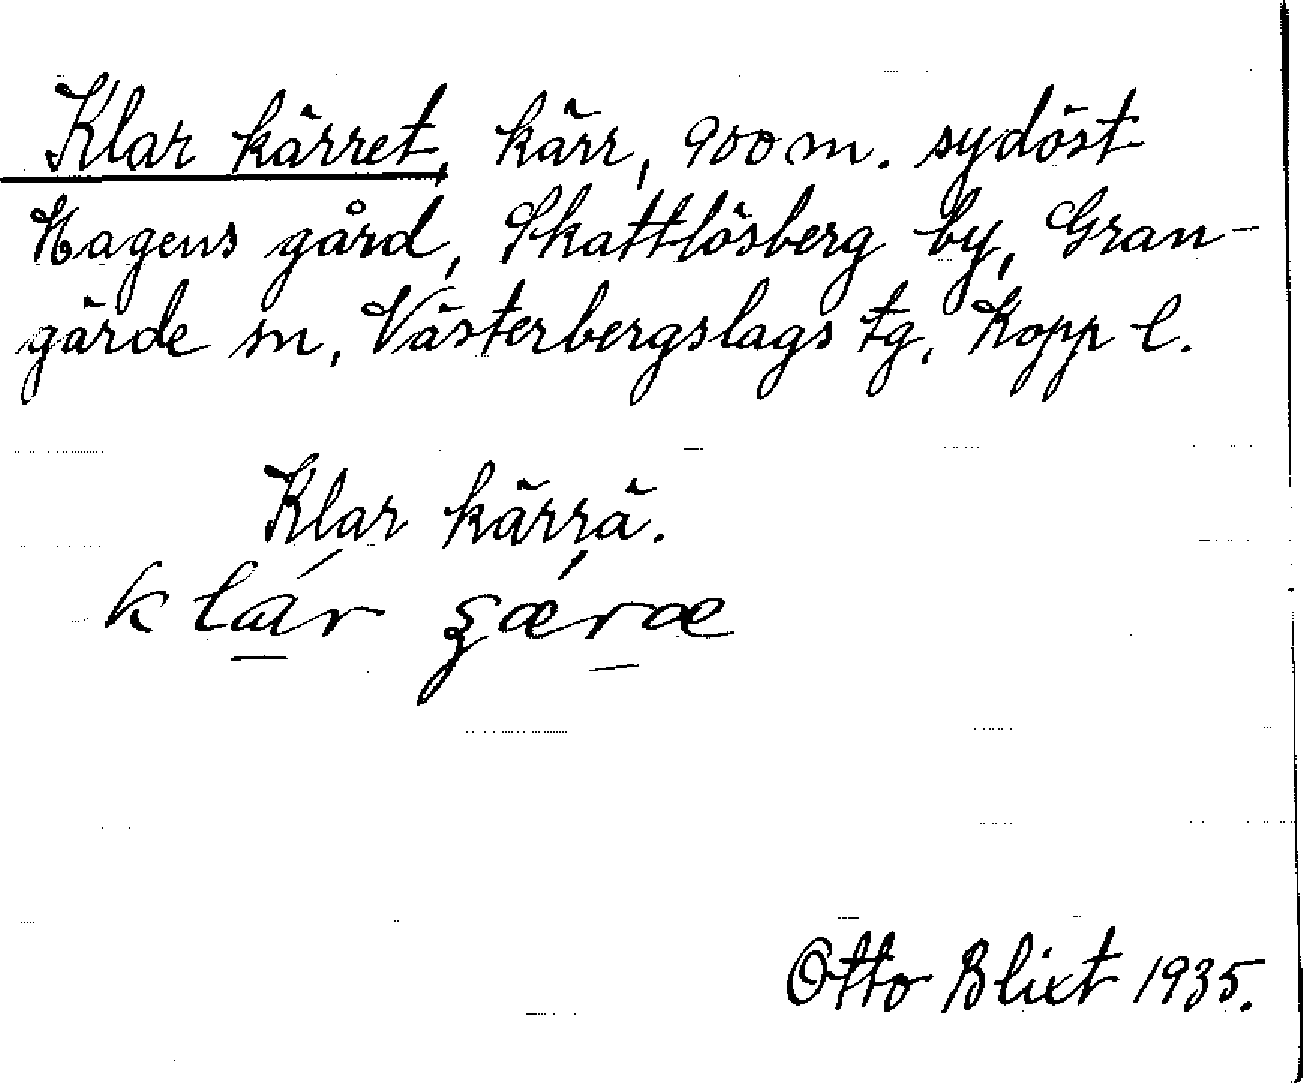 Klar kärret, kärr, 900 m. sydöst
Hagens gård, Skattlösberg by, Gran-
gärde sn, Västerbergslags tg, Kopp l.
Klar kärrä.
klár ʂǽræ
Otto Blixt 1935.